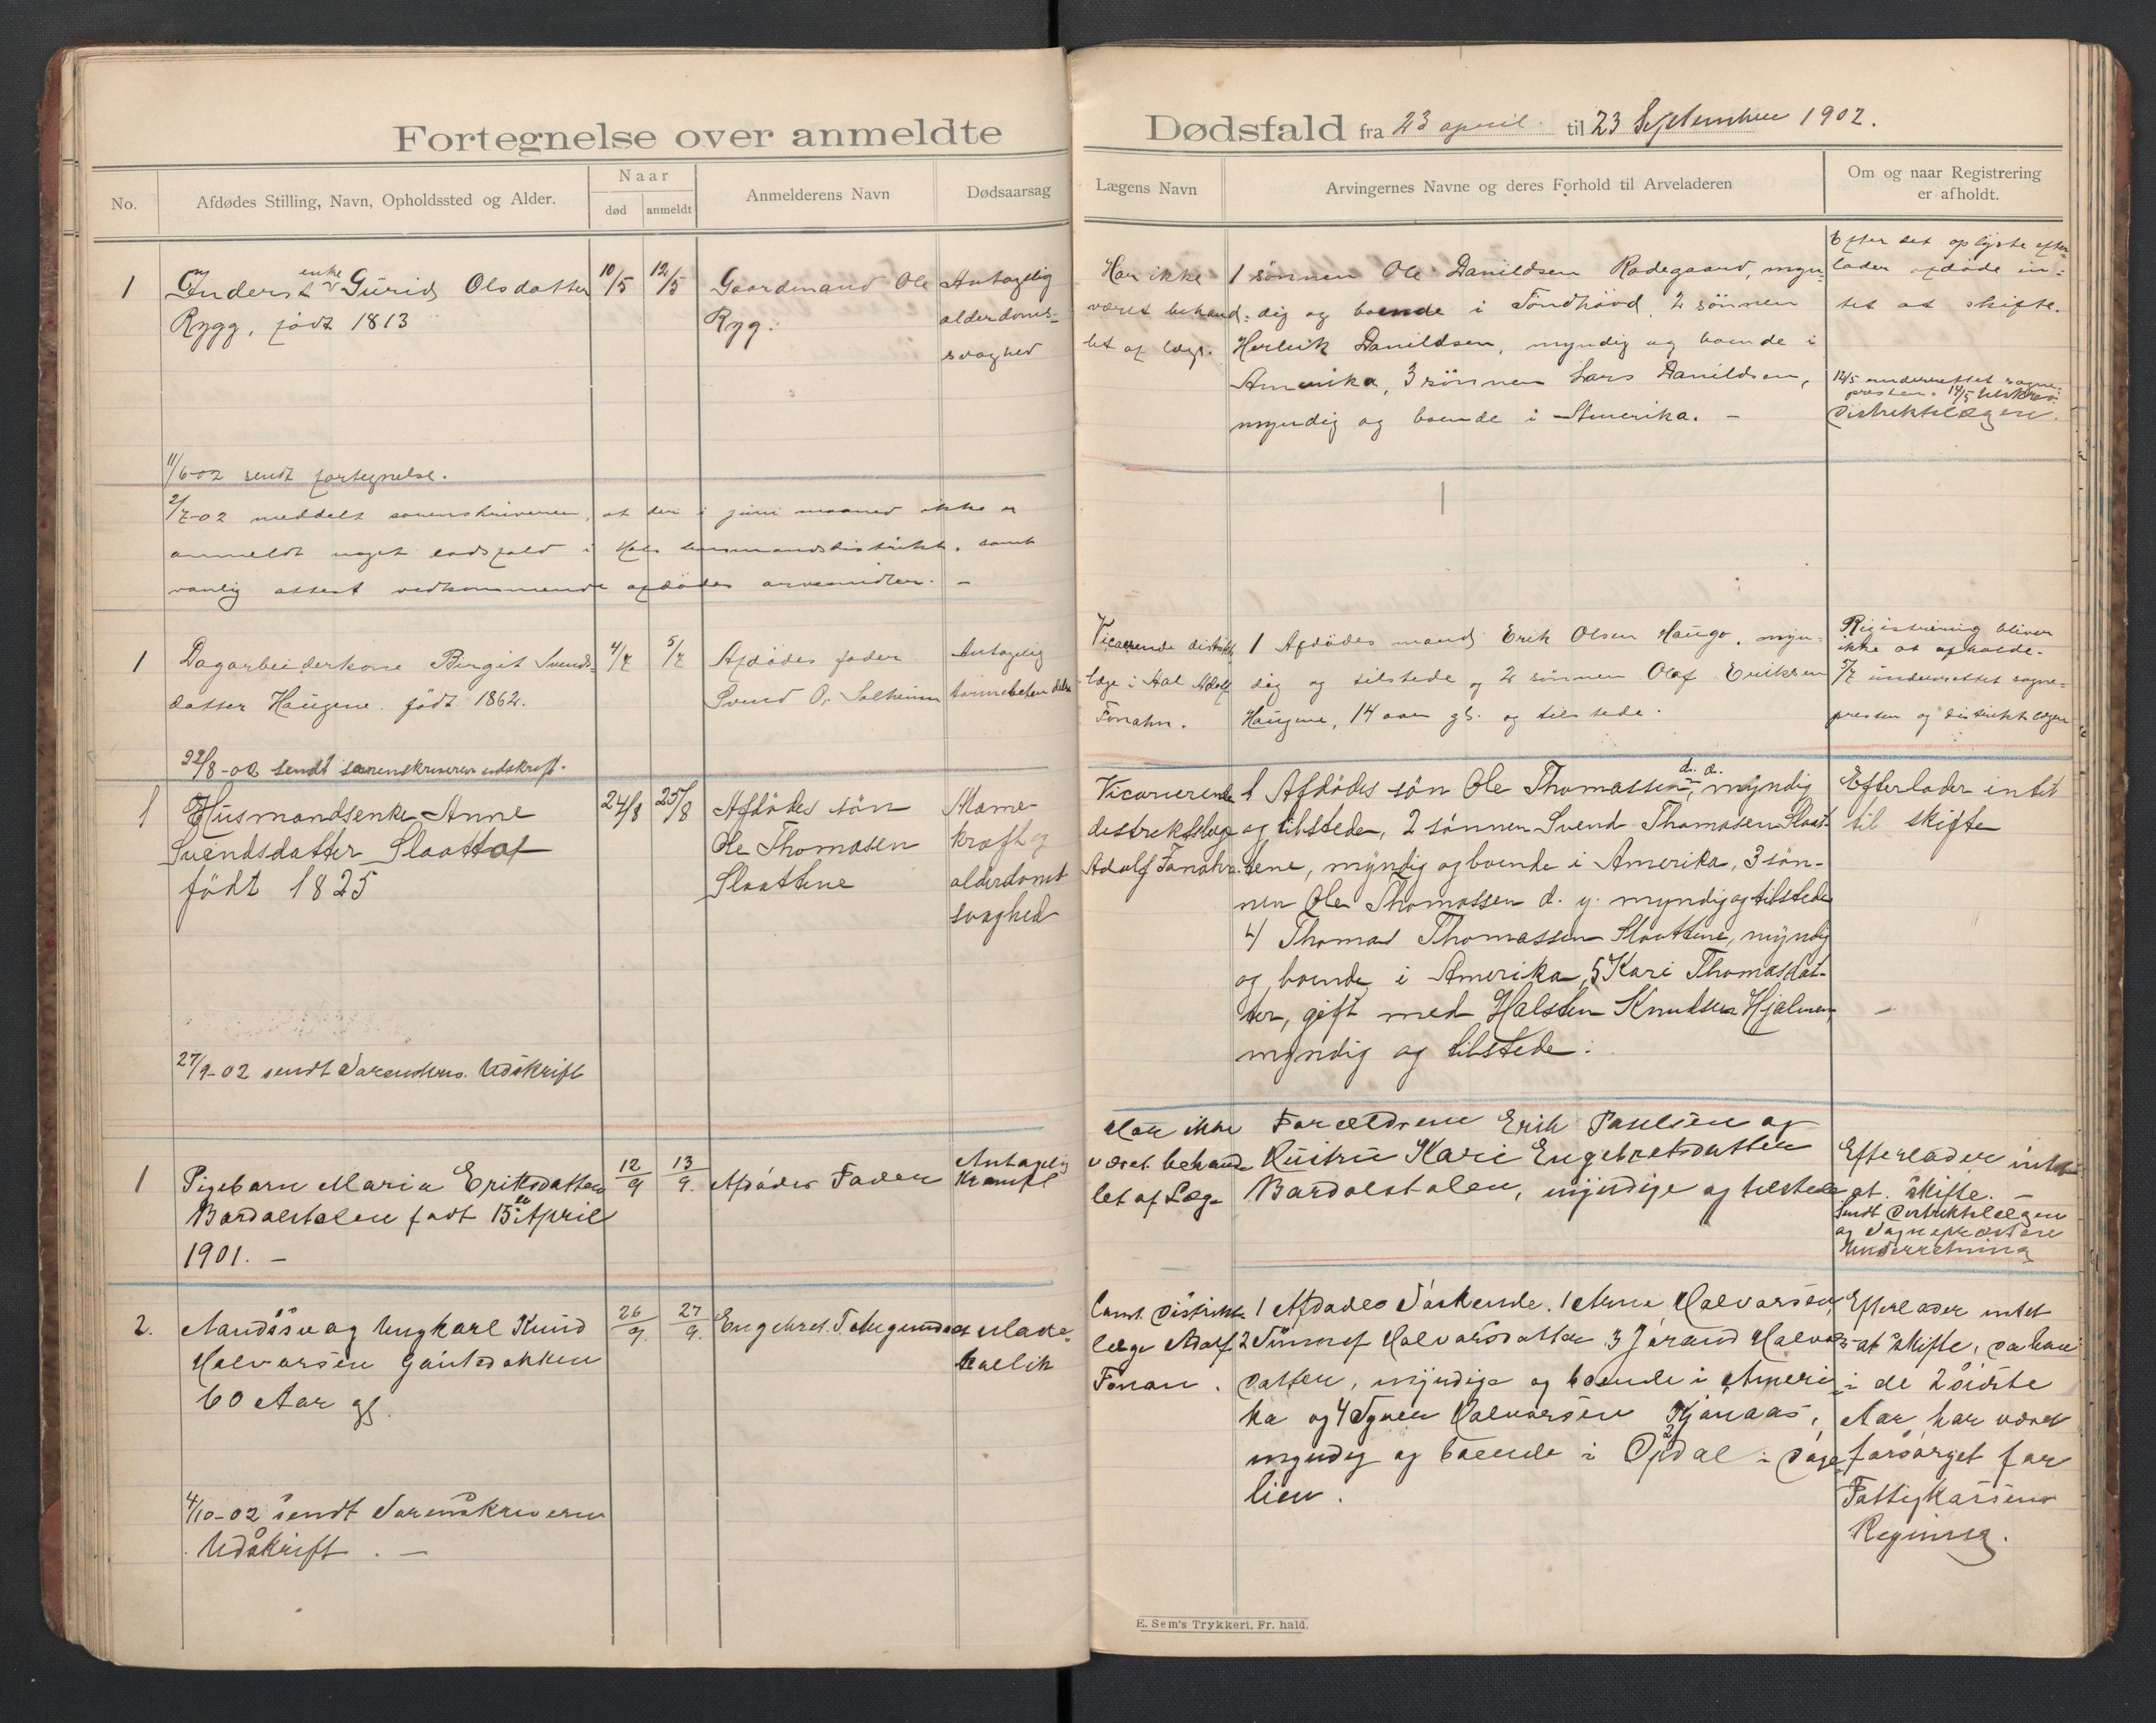 Fortegnelse over anmeldte
Dødsfald fra 23 april til 23 September 1902.
No.
Afdødes Stilling, Navn, Opholdssted og Alder.
Naar
død
anmeldt
Anmelderens Navn
Dødsaarsag
Lægens Navn
Arvingernes Navne og deres Forhold til Arveladeren
Om og naar Registrering
er afholdt.
1
Inderst enke Gurid Olsdatter
Rygg, født 1813
10/5
12/5
Gaardmand Ole
Ryg.
Antagelig
alderdoms-
svaghed
Har ikke
været behand-
let af læge.
1 sønnen Ole Danildsen Rodegaard, myn-
dig og boende i Tøndhøvd, 2 sønnen
Herleik Danildsen, myndig og boende i
Amerika, 3 sønnen Lars Danildsen,
myndig og boende i Amerika. -
Efter det oplyste efter-
lader afdøde in-
tet at skifte.
12/5 underrettet sogne-
presten. 14/5
Distriktslægen.
11/6-02 sendt fortegnelse.
2/7-02 meddelt sorenskriveren, at der i juni maaned ikke er
anmeldt noget dødsfald i Hols lensmandsdistrikt, samt
vanlig attest vedkommende afdødes arvemidler. -
1
Dagarbeiderkone Birgit Svends-
datter Haugene. født 1862.
4/7
5/7
Afdødes fader
Svend O. Solheim
Antagelig
Vicarierende distrikts-
læge i Aal Adolf
Fonahn.
1 Afdødes mand Erik Olsen Haugo, myn-
dig og tilstede og 2 sønnen Olaf Eriksen
Haugene, 14 aar gl. og tilstede.
Registrering bliver
ikke at afholde.
5/7 underrettet sogne-
presten og distriktslægen
22/8-02 sendt sorenskriveren udskrift.
1
Husmandsenke Anne
Svendsdatter Slaatto
født 1825
24/8
25/8
Afdødes søn
Ole Thomasen
Slaattene
Mave-
kræft og
alderdoms
svaghed
Vicarierende
distriktslæge
Adolf Fonahn.
1 Afdødes søn Ole Thomassen, d. æ. myndig
og tilstede, 2 sønnen Svend Thomasen Slaat-
tene, myndig og boende i Amerika, 3 søn-
nen Ole Thomassen d. y. myndig og tilstede
4 Thomas Thomassen Slaattene, myndig
og boende i Amerika, 5 Kari Thomasdat-
ter, gift med Halsten Knudsen Hjalmen,
myndig og tilstede.
Efterlader intet
til skifte
27/9-02 sendt Sorenskriv. Udskrift
1
Pigebarn Maria Eriksdatter
Bardolstolen født 15de April
1901. -
12/9
13/9.
Afdødes Fader
Antagelig
Krampe
Har ikke
været behand-
let af Læge
Forældrene Erik Paulsen og
Hustru Kari Engebretsdatter
Bardolstolen, myndige og tilstede
Efterlader intet
at skifte. -
Sendt Distriktslægen
og Sognepræsten
Underretning
2.
Ungkarl Knud
Halvorsen
60 Aar gl.
26/9.
27/9.
Engebret T.
Mave-
Const. Distrikts-
læge Adolf
Fonan.
1 Afdødes Søskende. 1 Arne Halvorsen,
2 Sünnøf Halvorsdatter 3 Jørand Halvors-
datter, myndige og boende i Ameri-
ka og 4 Halvorsen
myndig og boende i Opdal i
lien.
Efterlader intet
at skifte, da han
i de 2 sidste
Aar har været
forsørget for
Fattigkassens
Regning.
4/10-02 sendt Sorenskriveren
Udskrift. -
E. Sem's Trykkeri, Fr.hald.